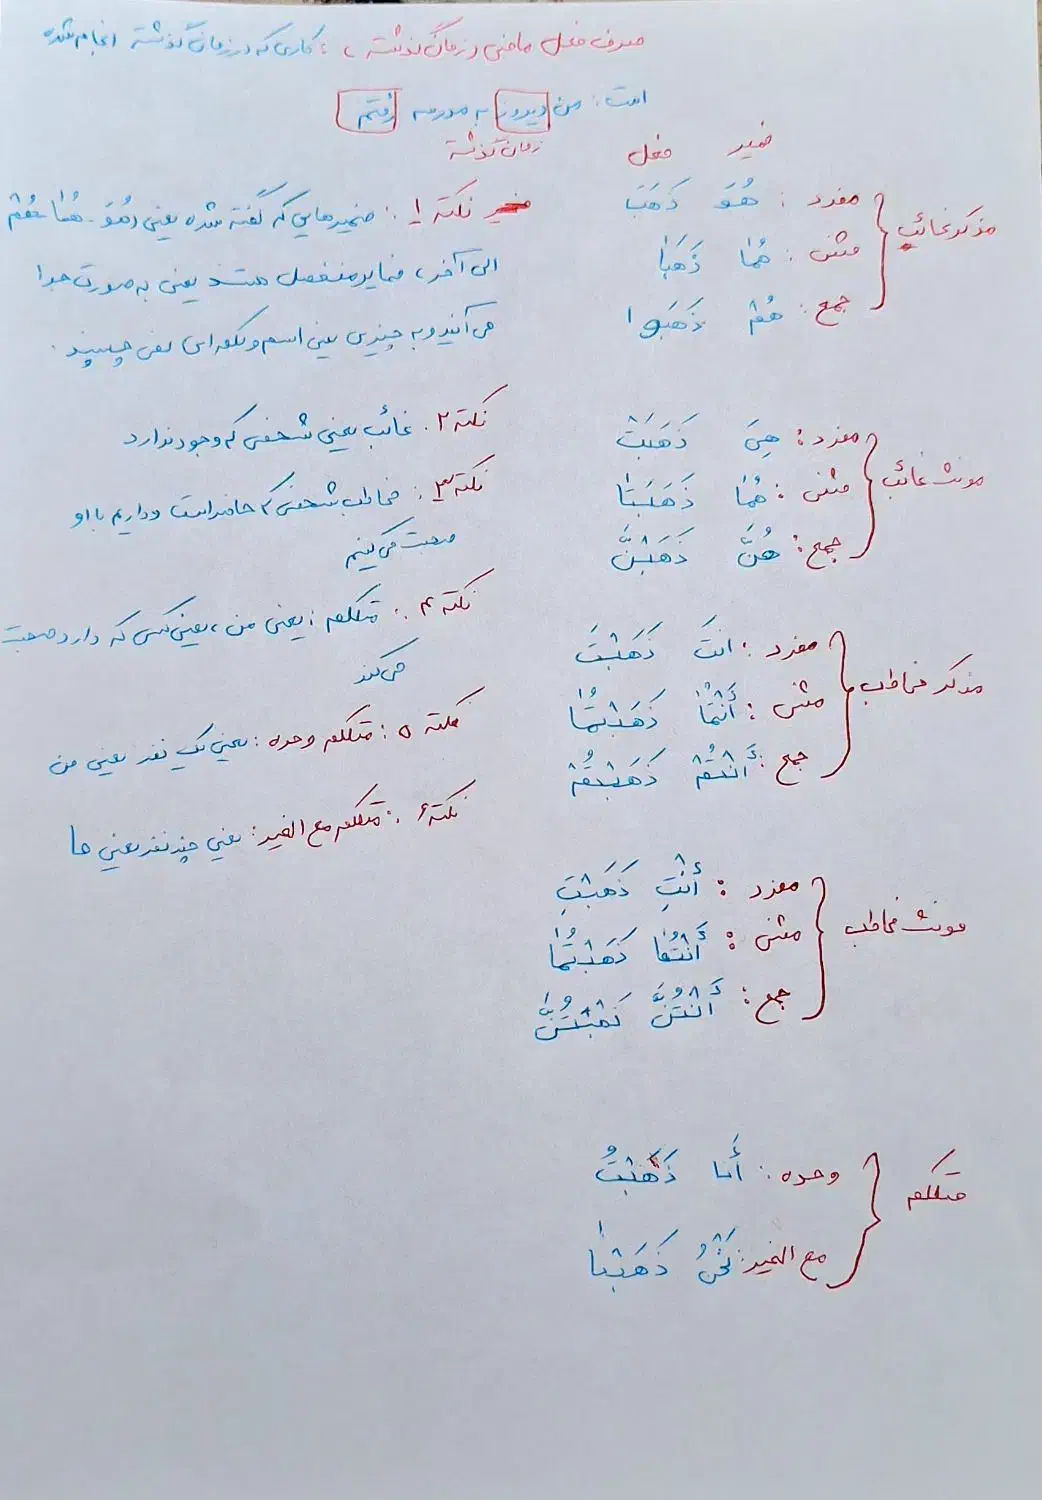 صرف فعل ماضی (زمان گذشته) : کاری که در زمان گذشته انجام شده
است : من دیروز به مدرسه رفتم
زمان گذشته
ضمیر فعل
مذکر غائب
مفرد : هُوَ ذَهَبَ
مثنی : هُمٰا ذَهَبٰا
جمع : هُمْ ذَهَبوا
مونث غائب
مفرد : هِیَ ذَهَبَتْ
مثنی : هُمٰا ذَهَبَتٰا
جمع : هُنَّ ذَهَبْنَ
مذکر مخاطب
مفرد : انتَ ذَهَبْتَ
مثنی : أَنْتُمٰا ذَهَبْتُمٰا
جمع : أَنْتُمْ ذَهَبْتُمْ
مونث مخاطب
مفرد : أَنْتِ ذَهَبْتِ
مثنی : أَنْتُمٰا ذَهَبْتُمٰا
جمع : أَنْتُنَّ ذَهَبْتُنَّ
متکلم
وحده : أَنا ذَهَبْتُ
مع الغیر : نَحْنُ ذَهَبْنٰا
نکته ۱ : ضمیرهایی که گفته شده یعنی (هُوَ - هُمٰا - هُمْ
الی آخر) ضمایر منفصل هستند یعنی به صورت جدا
می آیند و به چیزی یعنی اسم و کلمه ای نمی چسبند .
نکته ۲ . غائب یعنی شخصی که وجود ندارد
نکته ۳ : مخاطب شخصی که حاضر است و داریم با او
صحبت می کنیم
نکته ۴ : متکلم : یعنی من ، یعنی کسی که دارد صحبت
می کند
نکته ۵ : متکلم وحده : یعنی یک نفر یعنی من
نکته ۶ : متکلم مع الغیر : یعنی چند نفر یعنی ما